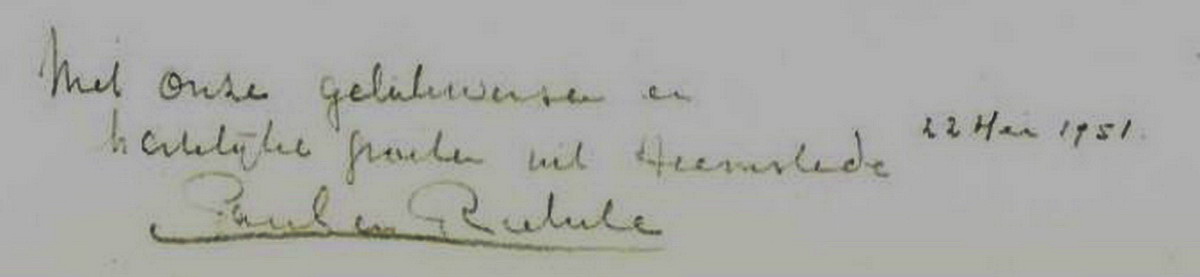 Met onze gelukwensen en
hartelijke groeten uit Heemstede
22 Mei 1951.
Paul en